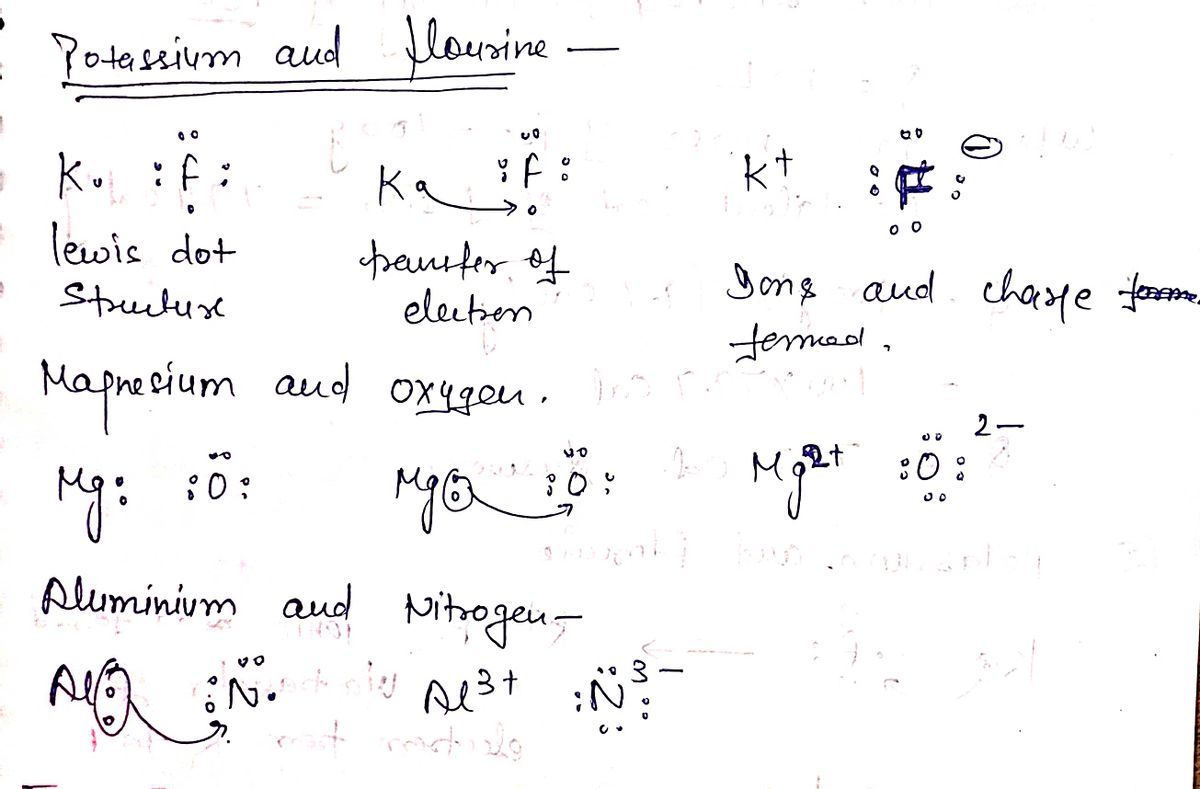 Potassium and flourine —
K. :F: K. :F: K+ :F: ⊖
lewis dot transfer of Ions and charge
Structure electron formed.
Magnesium and oxygen.
Mg: :O: Mg: :O: Mg2+ :O: 2-
Aluminium and Nitrogen -
Al :N. Al3+ :N: 3-